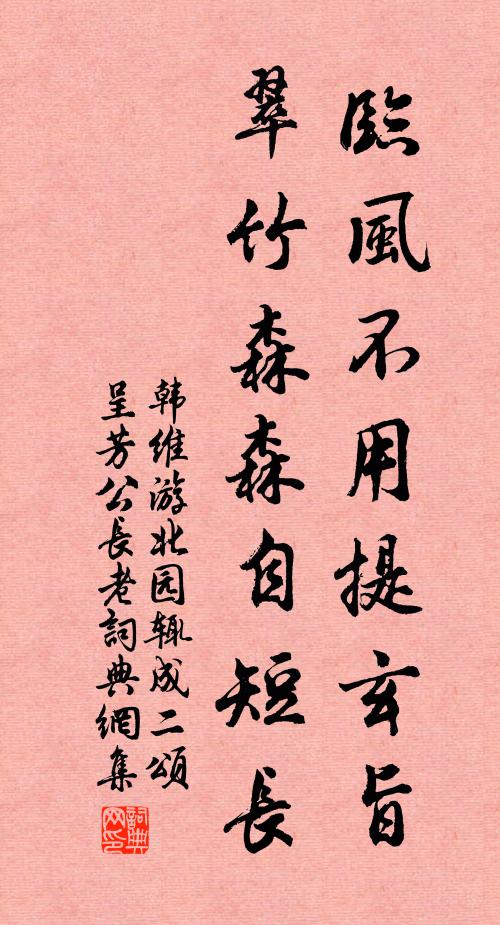 臨風不用提玄旨
翠竹森森自短長
韩維游北园辄成二頌
呈芳公長老詞典網集
詞典网印